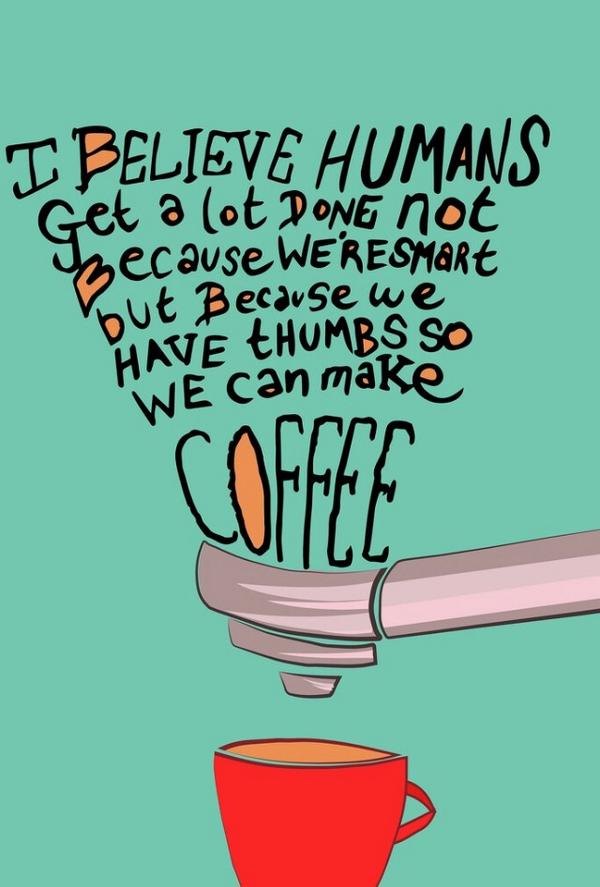 I BELIEVE HUMANS
Get a lot DONE not
Because WE'RE SMaRt
but Because we
HAVE tHUMBS SO
WE can maKe
COFFEE